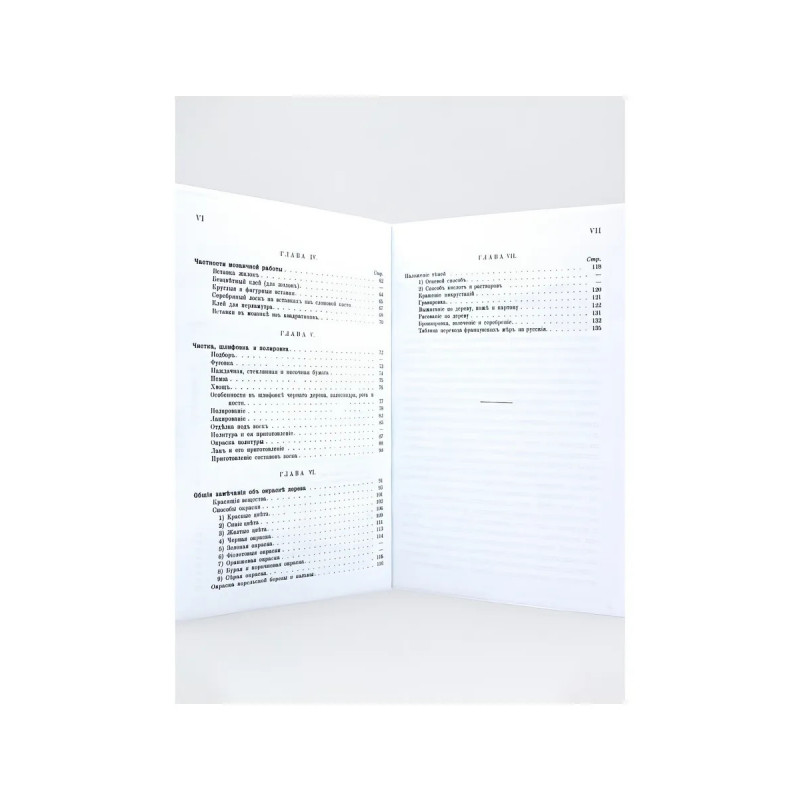 VI
ГЛАВА IV.
Стр.
Частности мозаичной работы
Вставка жилокъ 62
Безцвѣтный клей (для жилокъ). —
Круглыя и фигурныя вставки 64
Серебряный лоскъ на вставкахъ изъ слоновой кости 65
Клей для перламутра. 67
Вставки въ мозаикѣ изъ квадратиковъ. 70
ГЛАВА V.
Чистка, шлифовка и полировка. 72
Подборъ. —
Фуговка 73
Наждачная, стеклянная и песочная бумага 74
Пемза 75
Хвощъ 76
Особенности въ шлифовкѣ чернаго дерева, палисандра, рога и
кости. 77
Полированіе 79
Лакированіе 83
Отдѣлка подъ воскъ 85
Политура и ея приготовленіе —
Окраска политуры 87
Лакъ и его приготовленіе 88
Приготовленіе составовъ воска 88
ГЛАВА VI.
Общія замѣчанія объ окраскѣ дерева 91
Красящія вещества 92
Способы окраски 101
1) Красные цвѣта 106
2) Синіе цвѣта 109
3) Желтые цвѣта 111
4) Черная окраска 113
5) Зеленая окраска 114
6) Фіолетовая окраска —
7) Оранжевая окраска —
8) Бурая и коричневая окраска
9) Сѣрая окраска
Окраска корельской березы и капины
VII
ГЛАВА VII.
Стр.
Наложеніе тѣней 119
1) Огневой способъ —
2) Способъ кислотъ и растворовъ
Крашеніе инкрустацій 120
Гравировка 121
Выжиганіе по дереву, кожѣ и картону 122
Рисованіе по дереву 131
Бронзировка, золоченіе и серебреніе 132
Таблица перевода французскихъ мѣръ на русскія 135